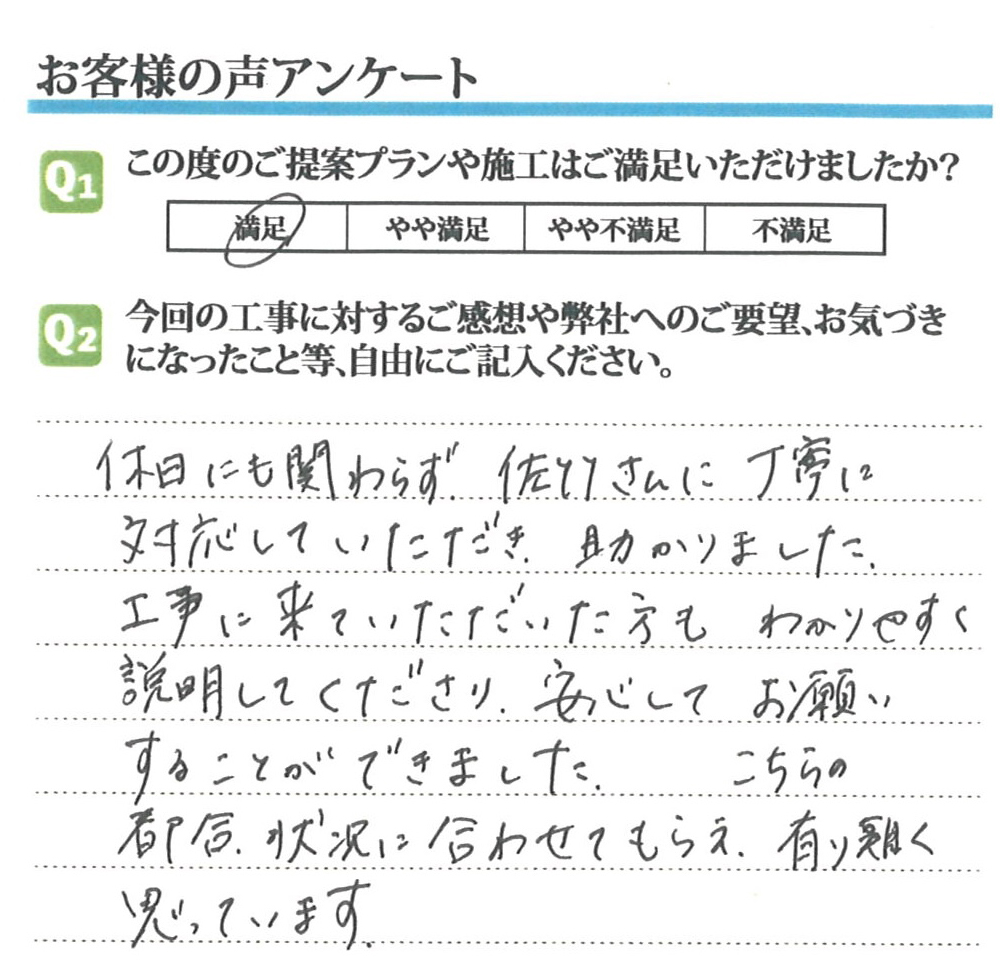 お客様の声アンケート
Q1 この度のご提案プランや施工はご満足いただけましたか?
満足 やや満足 やや不満足 不満足
Q2 今回の工事に対するご感想や弊社へのご要望、お気づき
になったこと等、自由にご記入ください。
休日にも関わらず、佐竹さんに丁寧に
対応していただき、助かりました。
工事に来ていただいた方も わかりやすく
説明してくださり、安心して お願い
することができました。 こちらの
都合、状況に合わせてもらえ、有り難く
思っています。